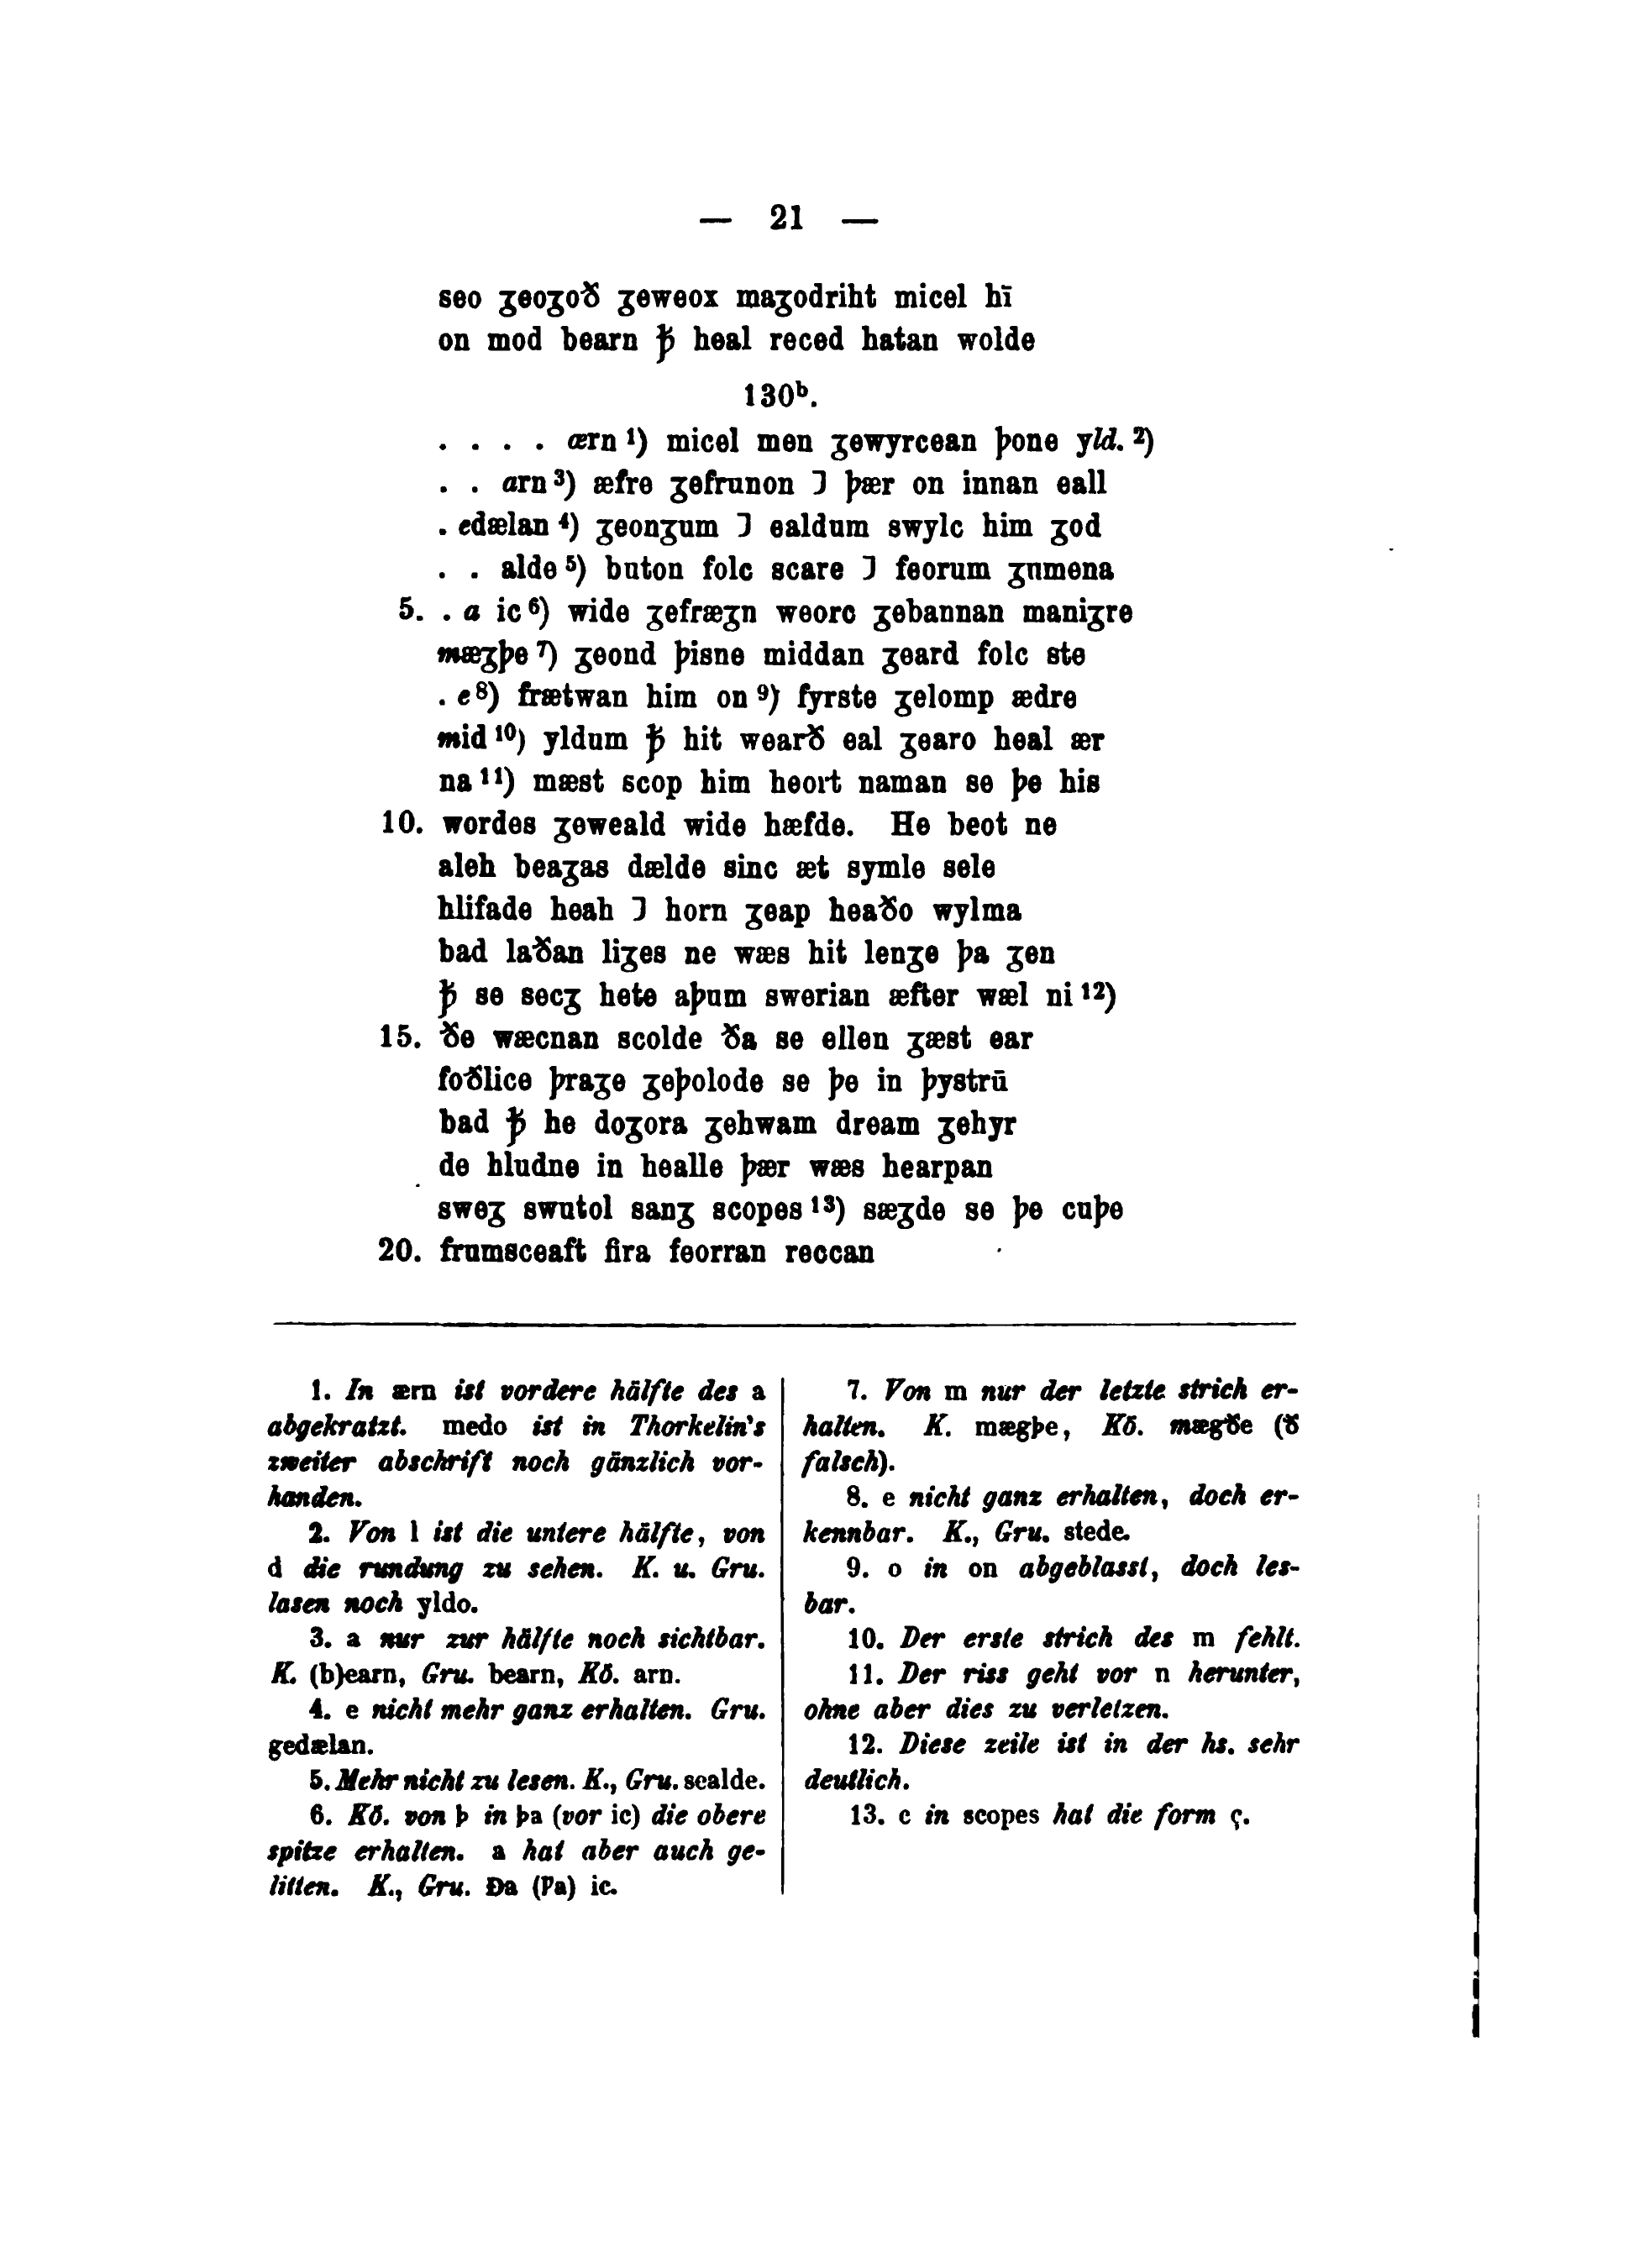 — 21 —
seo ʒeoʒoð ʒeweox maʒodriht micel hī
on mod bearn ꝥ heal reced hatan wolde
130ᵇ.
. . . . ærn ¹) micel men ʒewyrcean þone yld. ²)
. . arn ³) æfre ʒefrunon ⁊ þær on innan eall
. edælan ⁴) ʒeonʒum ⁊ ealdum swylc him ʒod
. . alde ⁵) buton folc scare ⁊ feorum ʒumena
5. . a ic ⁶) wide ʒefræʒn weorc ʒebannan maniʒre
mæʒþe ⁷) ʒeond þisne middan ʒeard folc ste
. e ⁸) frætwan him on ⁹) fyrste ʒelomp ædre
mid ¹⁰) yldum ꝥ hit wearð eal ʒearo heal ær
na ¹¹) mæst scop him heort naman se þe his
10. wordes ʒeweald wide hæfde. He beot ne
aleh beaʒas dælde sinc æt symle sele
hlifade heah ⁊ horn ʒeap heaðo wylma
bad laðan liʒes ne wæs hit lenʒe þa ʒen
ꝥ se secʒ hete aþum swerian æfter wæl ni ¹²)
15. ðe wæcnan scolde ða se ellen ʒæst ear
foðlice þraʒe ʒeþolode se þe in þystrū
bad ꝥ he doʒora ʒehwam dream ʒehyr
de hludne in healle þær wæs hearpan
sweʒ swutol sanʒ scopes ¹³) sæʒde se þe cuþe
20. frumsceaft fira feorran reccan
1. In ærn ist vordere hälfte des a
abgekratzt. medo ist in Thorkelin's
zweiter abschrift noch gänzlich vor-
handen.
2. Von l ist die untere hälfte, von
d die rundung zu sehen. K. u. Gru.
lasen noch yldo.
3. a nur zur hälfte noch sichtbar.
K. (b)earn, Gru. bearn, Kö. arn.
4. e nicht mehr ganz erhalten. Gru.
gedælan.
5. Mehr nicht zu lesen. K., Gru. sealde.
6. Kö. von þ in þa (vor ic) die obere
spitze erhalten. a hat aber auch ge-
litten. K., Gru. Ða (Þa) ic.
7. Von m nur der letzte strich er-
halten. K. mægþe, Kö. mægðe (ð
falsch).
8. e nicht ganz erhalten, doch er-
kennbar. K., Gru. stede.
9. o in on abgeblasst, doch les-
bar.
10. Der erste strich des m fehlt.
11. Der riss geht vor n herunter,
ohne aber dies zu verletzen.
12. Diese zeile ist in der hs. sehr
deutlich.
13. c in scopes hat die form ç.